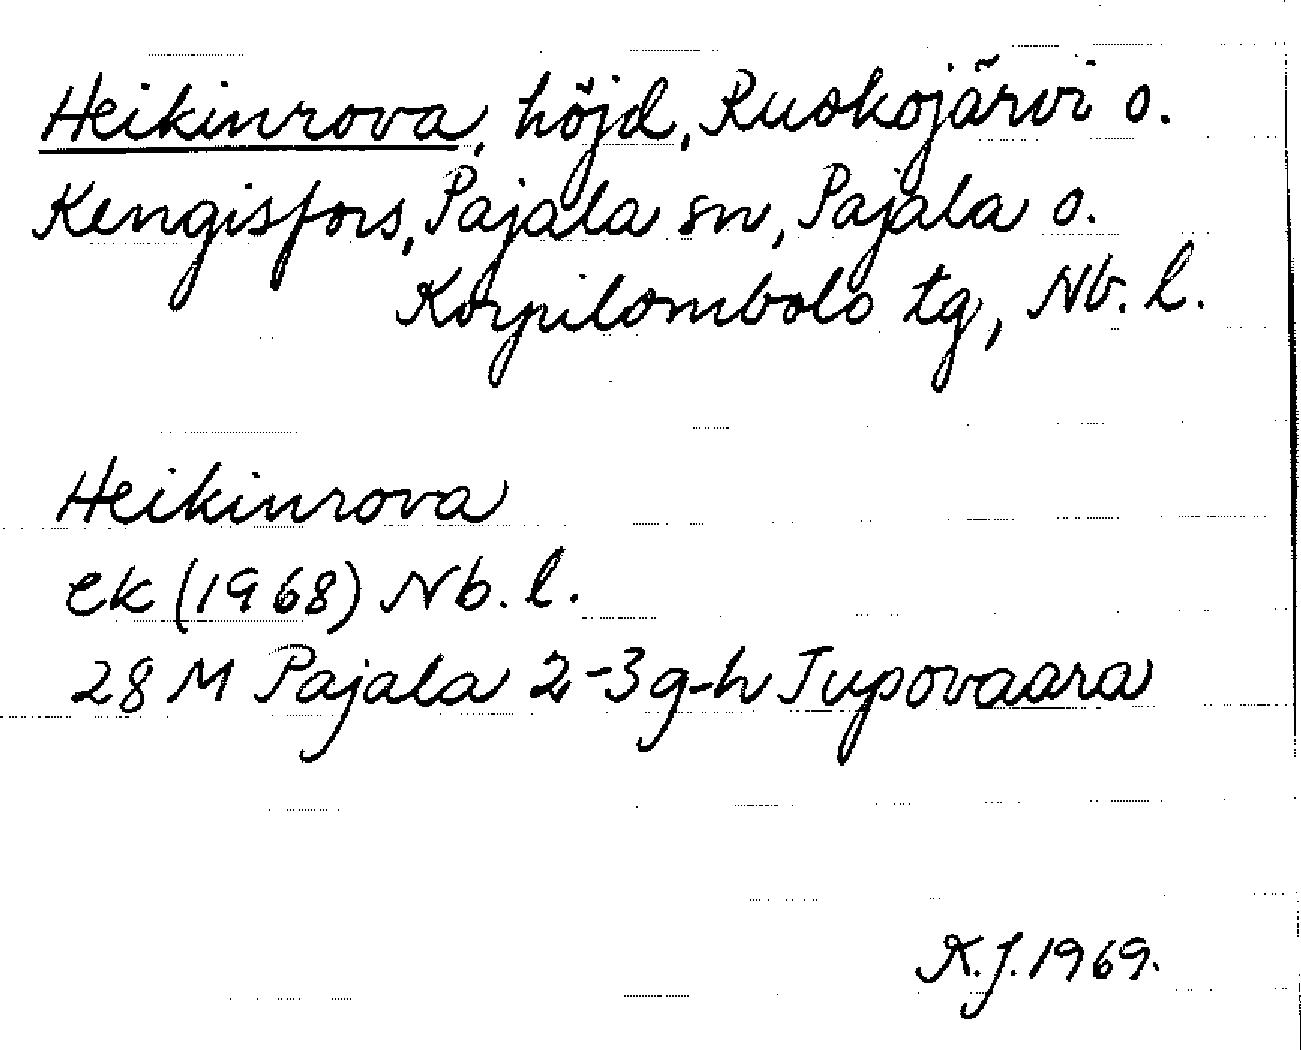 Heikinrova, höjd, Ruokojärvi o.
Kengisfors, Pajala sn, Pajala o.
Korpilombolo tg, Nb. l.
Heikinrova
ek (1968) Nb. l.
28 M Pajala 2-3 g-h Tupovaara
K.J. 1969.